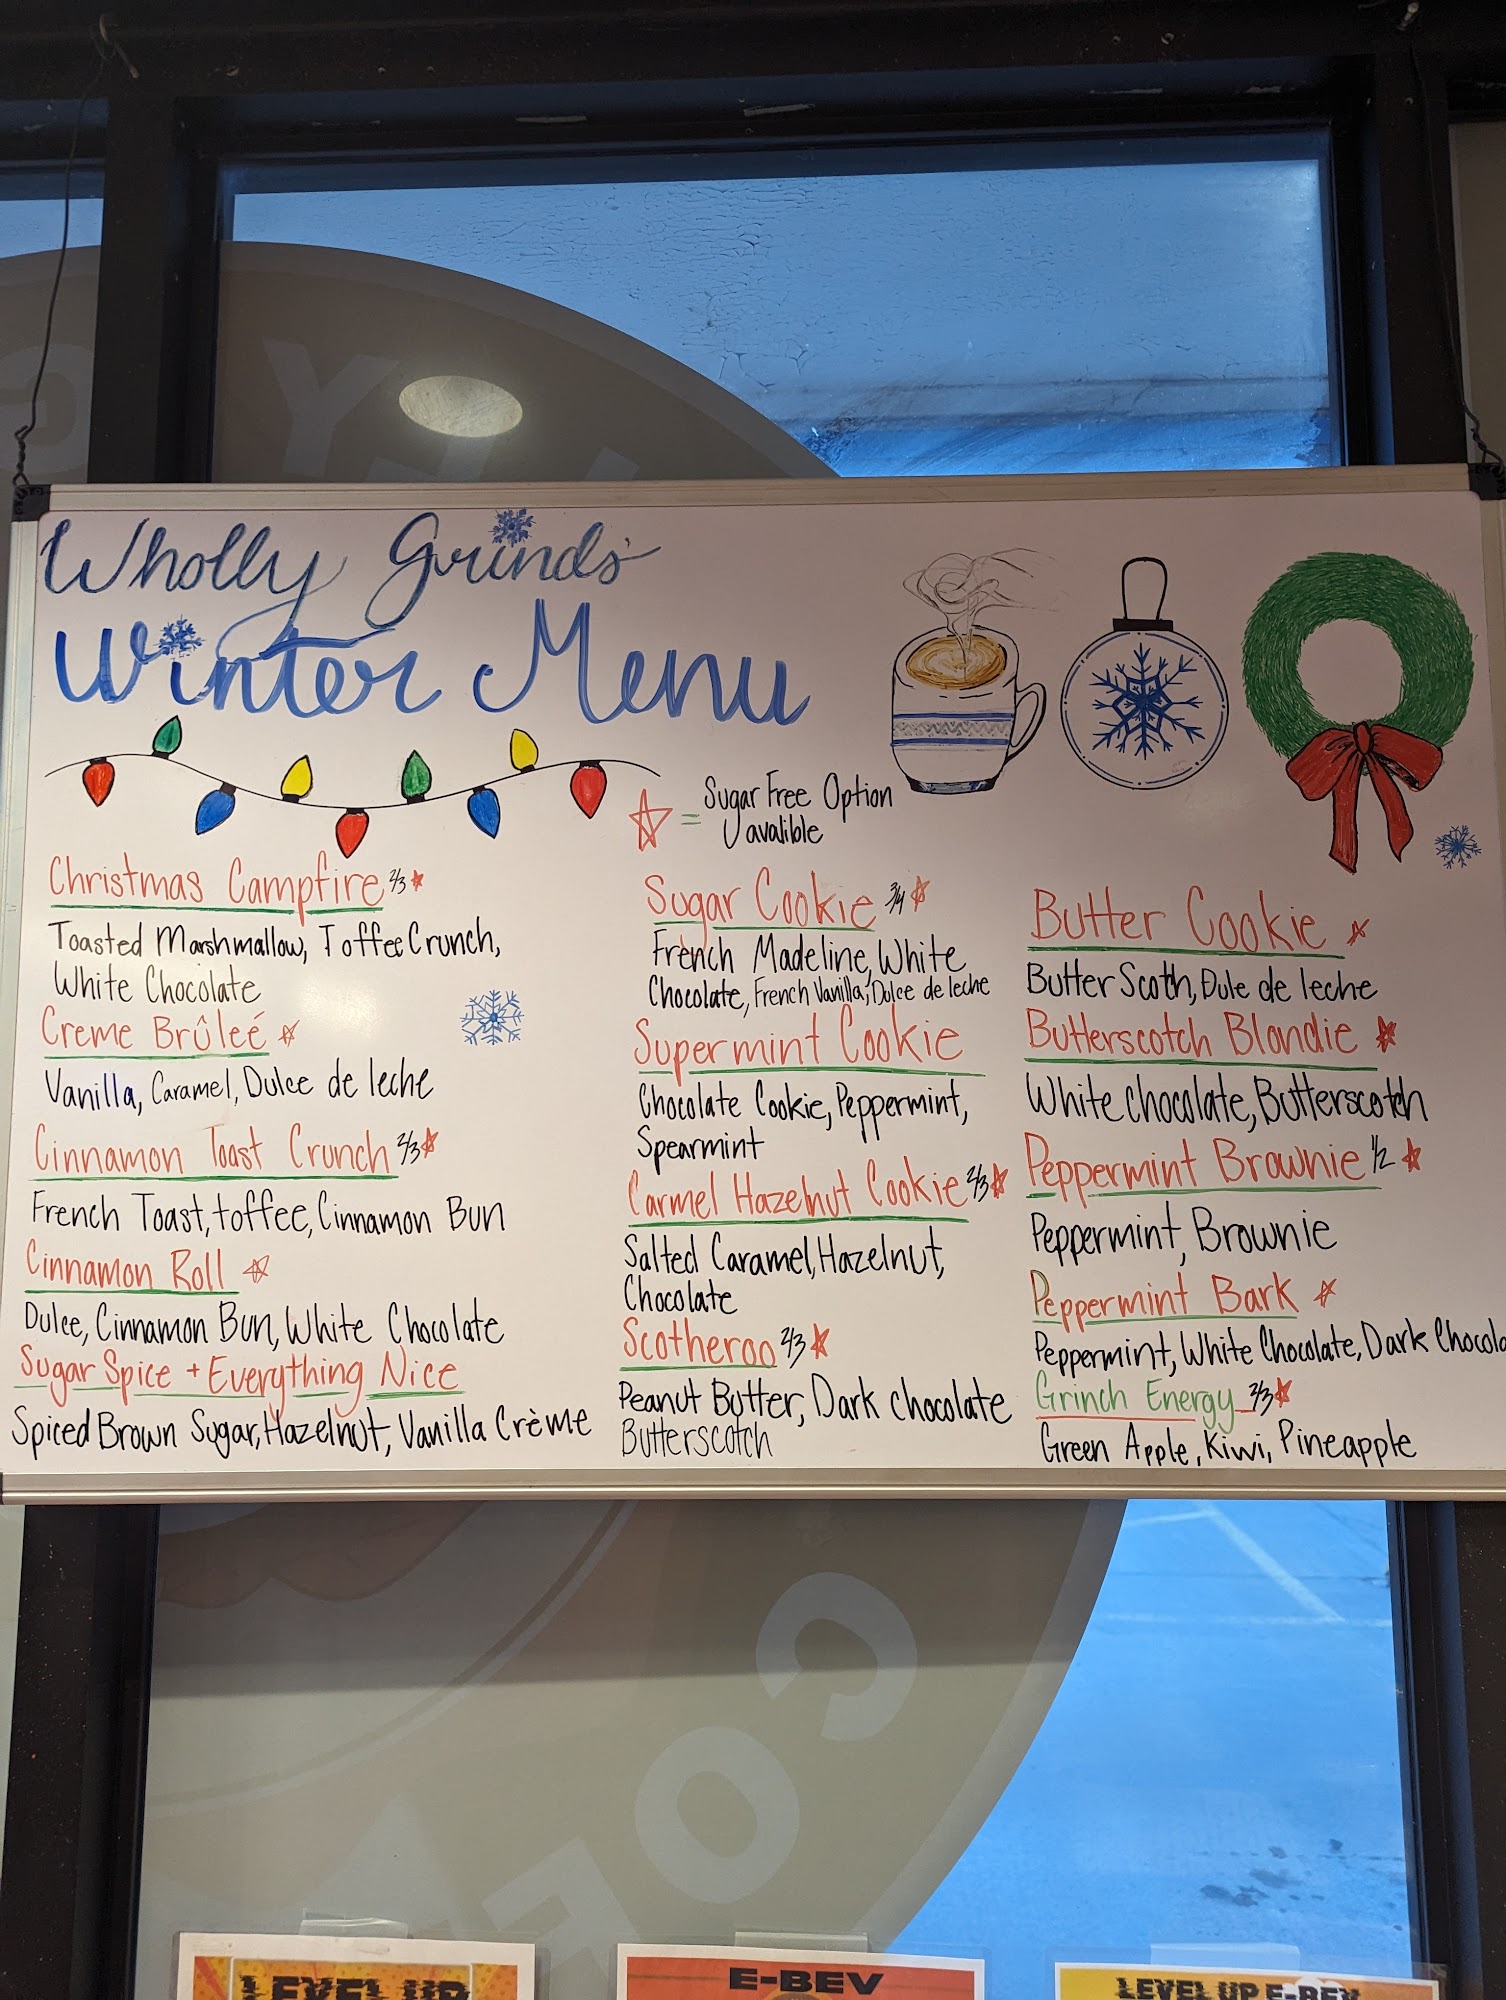 Wholly Grinds'
Winter Menu
☆ = Sugar Free Option
avalible
Christmas Campfire 2/3 ☆
Toasted Marshmallow, Toffee Crunch,
White Chocolate
Creme Brûleé ☆
Vanilla, Caramel, Dulce de leche
Cinnamon Toast Crunch 2/3 ☆
French Toast, toffee, Cinnamon Bun
Cinnamon Roll ☆
Dulce, Cinnamon Bun, White Chocolate
Sugar Spice + Everything Nice
Spiced Brown Sugar, Hazelnut, Vanilla Crème
Sugar Cookie 3/4 ☆
French Madeline, White
Chocolate, French Vanilla, Dulce de leche
Supermint Cookie
Chocolate Cookie, Peppermint,
Spearmint
Carmel Hazelnut Cookie 2/3 ☆
Salted Caramel, Hazelnut,
Chocolate
Scotheroo 2/3 ☆
Peanut Butter, Dark Chocolate
Butterscotch
Butter Cookie ☆
Butter Scoth, Dule de leche
Butterscotch Blondie ☆
White chocolate, Butterscotch
Peppermint Brownie 1/2 ☆
Peppermint, Brownie
Peppermint Bark ☆
Peppermint, White Chocolate, Dark Chocola
Grinch Energy 2/3 ☆
Green Apple, Kiwi, Pineapple
LEVEL UP
E-BEV
LEVEL UP E-BEV